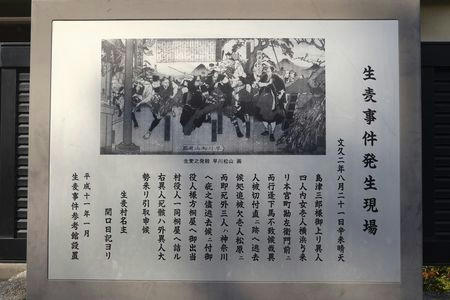 生麦事件発生現場
文久二年八月二十一日辛未晴天
島津三郎様御上り異人
四人内女壱人横浜ゟ来
リ本宮町勘左衛門前ニ
而行逢下馬不致候哉異
人被切付直ニ跡へ逃去
候処追被欠壱人松原ニ
而即死外三人ハ神奈川
へ疵之儘逃去候ニ付御
役人様方桐屋へ御出当
村役人一同桐屋へ詰ル
右異人死骸ハ外異人大
勢来り引取申候
生麦村名主
関口日記ヨリ
平成十一年一月
生麦事件参考館設置
生麦之発殺 早川松山 画